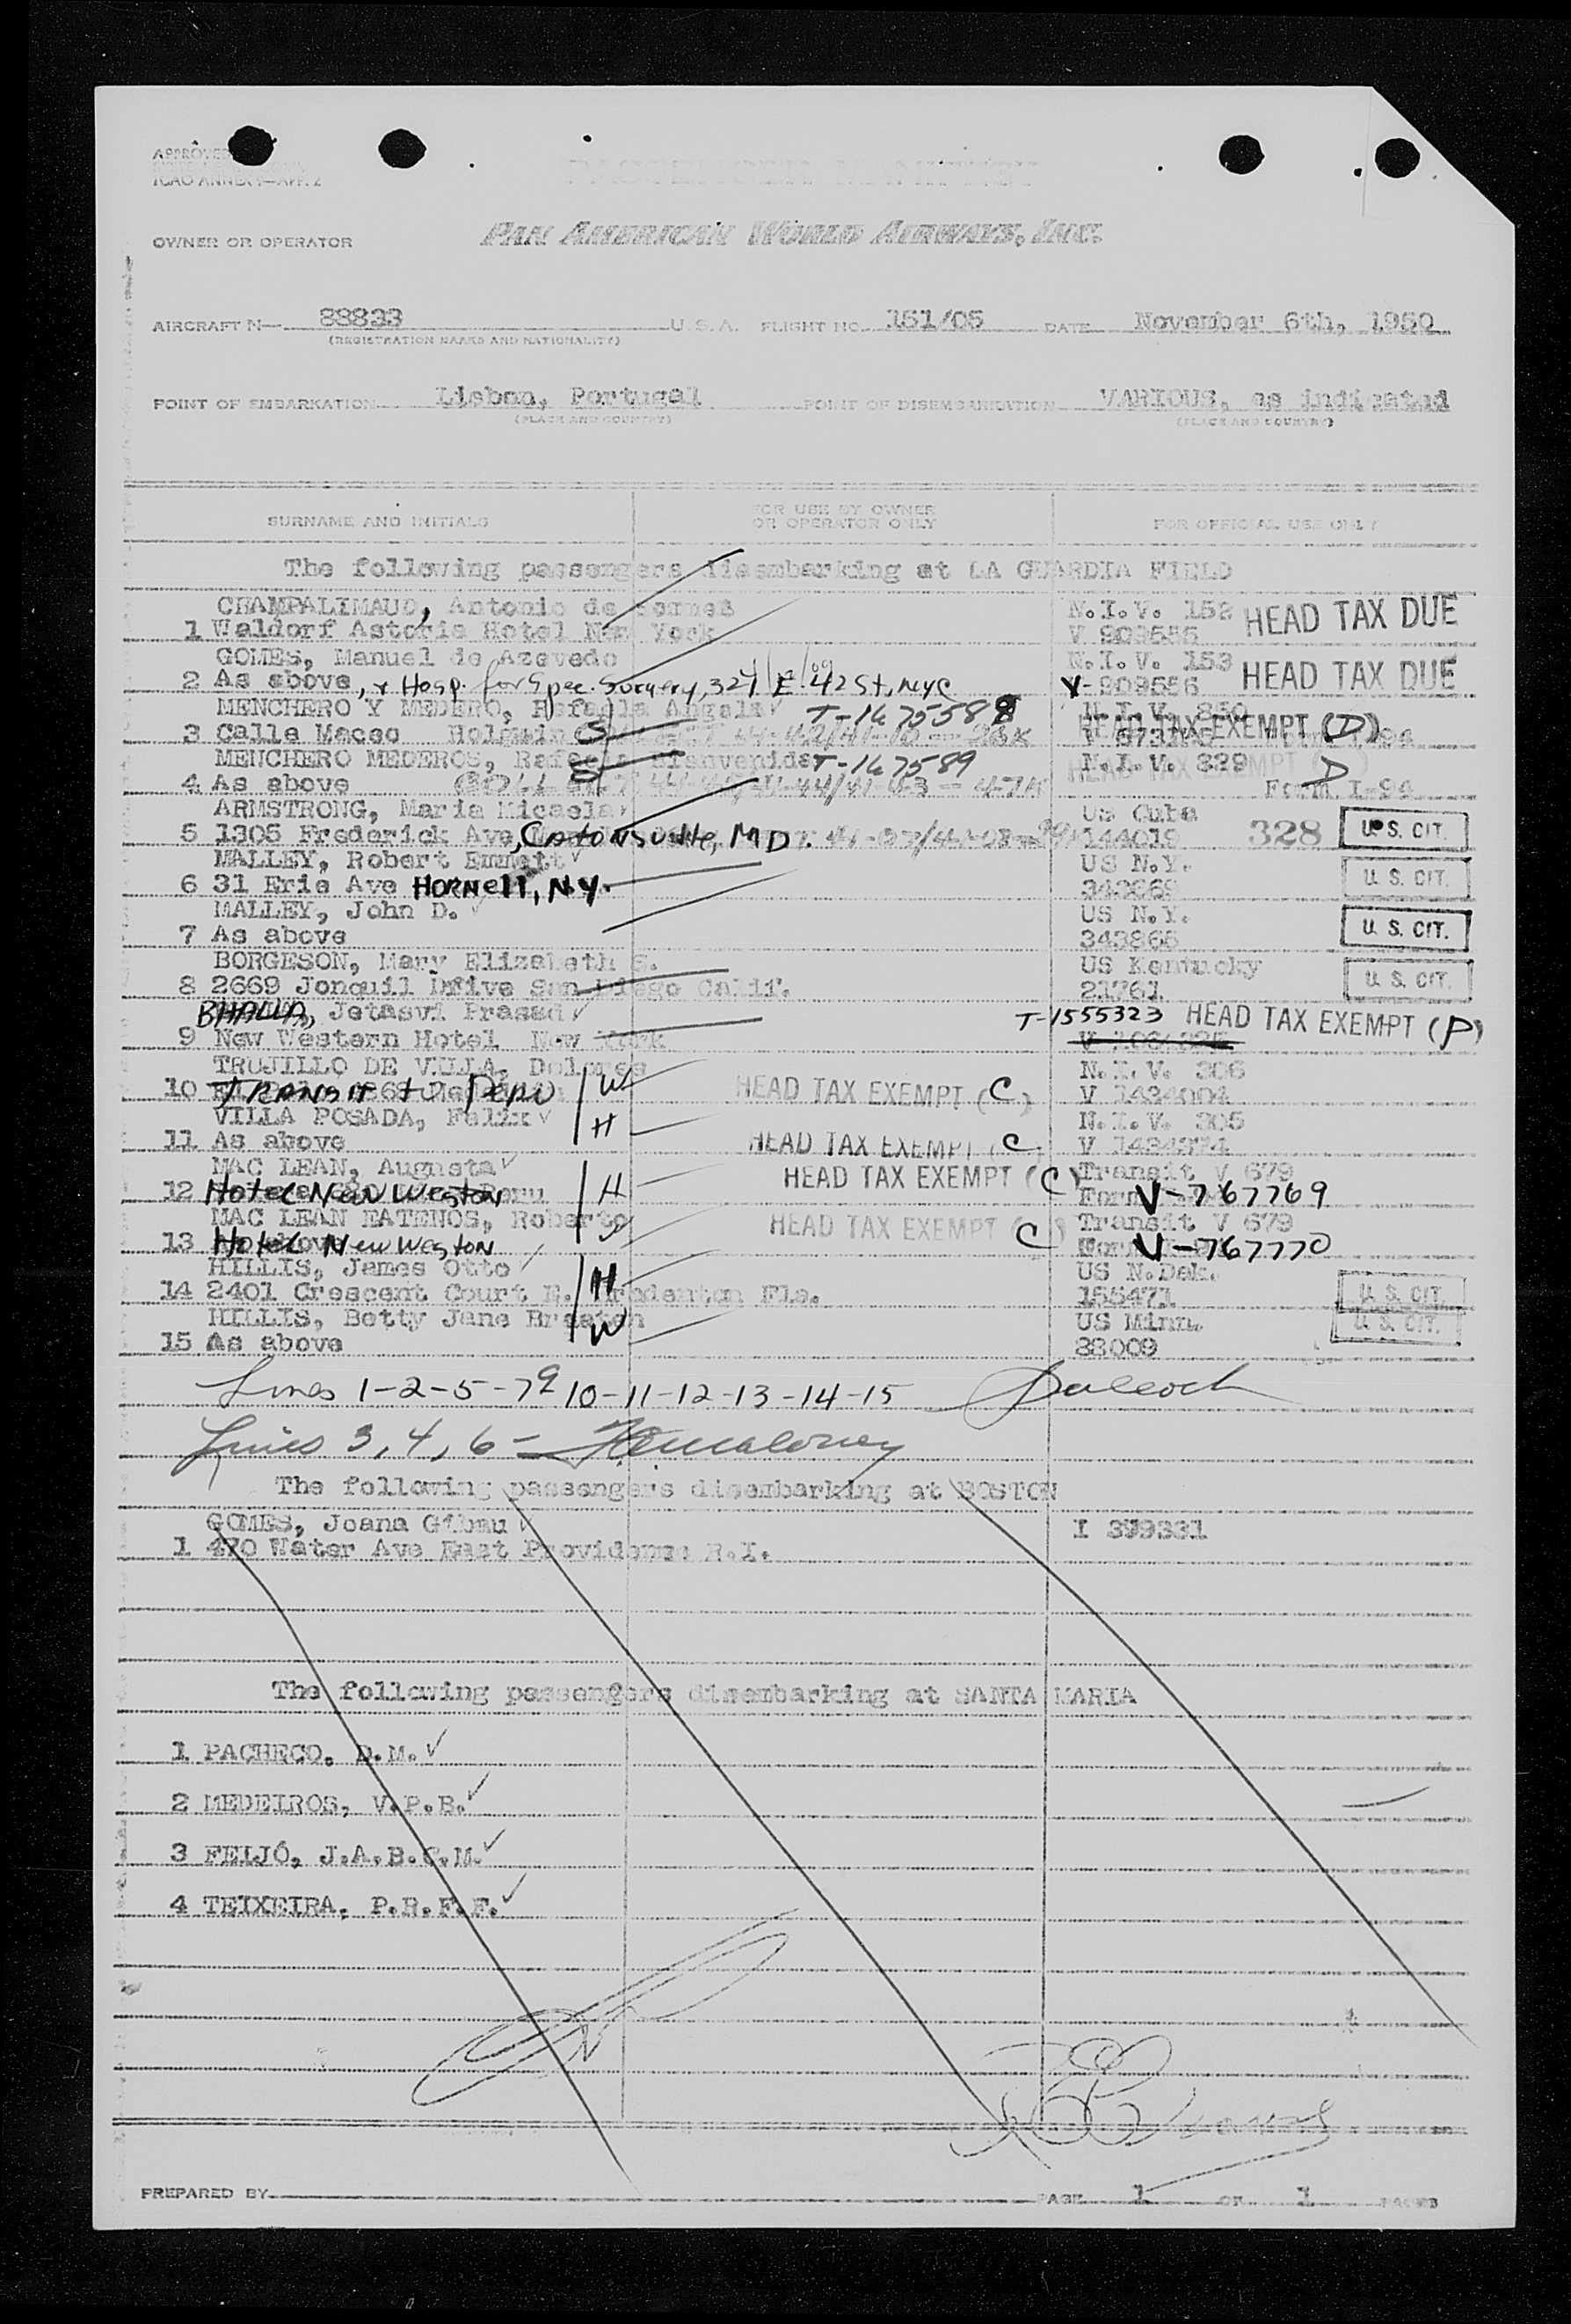 APPROVED
ICAO ANNEX 9—APP. 2
PASSENGER MANIFEST
OWNER OR OPERATOR PAN AMERICAN WORLD AIRWAYS, INC.
AIRCRAFT N— 88833 U.S.A. FLIGHT NO. 151/05 DATE November 6th, 1950
(REGISTRATION MARKS AND NATIONALITY)
POINT OF EMBARKATION Lisbon, Portugal POINT OF DISEMBARKATION VARIOUS, as indicated
(PLACE AND COUNTRY) (PLACE AND COUNTRY)
SURNAME AND INITIALS FOR USE BY OWNER OR OPERATOR ONLY FOR OFFICIAL USE ONLY
The following passengers disembarking at LA GUARDIA FIELD
CHAMPALIMAUD, Antonio de N.I.V. 152 HEAD TAX DUE
1 Waldorf Astoria Hotel New York V 909555
GOMES, Manuel de Azevedo N.I.V. 153 HEAD TAX DUE
2 As above, & Hosp. for Spec. Surgery, 321 E. 42 St, NYC V-909556
MENCHERO Y MEDERO, Rafaela Angela T-1675588 N.I.V. 330
3 Calle Maceo Holguin S HEAD TAX EXEMPT (D)
MENCHERO MEDEROS, Bienvenida T-167589 N.I.V. 329
4 As above D Form I-94
ARMSTRONG, Maria Micaela US Cuba
5 1305 Frederick Ave, Catonsville, MD. 144019 328 U.S. CIT.
MALLEY, Robert Emmett US N.Y.
6 31 Erie Ave Hornell, N.Y. 343869 U. S. CIT.
MALLEY, John D. US N.Y.
7 As above 343865 U. S. CIT.
BORGESON, Mary Elizabeth S. US Kentucky
8 2669 Jonquil Drive San Diego Calif. 21761 U. S. CIT.
BHALLA, Jetasvi Prasad T-1555323 HEAD TAX EXEMPT (P)
9 New Western Hotel New York
TRUJILLO DE VILLA, Dolores N.I.V. 306
10 TRANSIT to Peru W HEAD TAX EXEMPT (C) V 1434004
VILLA POSADA, Felix N.I.V. 305
11 As above H HEAD TAX EXEMPT (C) V 1434274
MAC LEAN, Augusta HEAD TAX EXEMPT (C) Transit V 679
12 Hotel New Weston Peru H Form V-767769
MAC LEAN EATENOS, Roberto HEAD TAX EXEMPT (C) Transit V 679
13 Hotel New Weston Form V-767770
HILLIS, James Otto US N.Dak.
14 2401 Crescent Court E. Bradenton Fla. H 155471 U. S. CIT.
HILLIS, Betty Jane US Minn. U. S. CIT.
15 As above W 38009
Lines 1-2-5-7 9 10-11-12-13-14-15
Lines 3, 4, 6 -
The following passengers disembarking at BOSTON
GOMES, Joana Gibau I 399331
1 470 Water Ave East Providence R.I.
The following passengers disembarking at SANTA MARIA
1 PACHECO, D.M.
2 MEDEIROS, V.P.B.
3 FEIJÓ, J.A.B.C.M.
4 TEIXEIRA, P.R.F.F.
PREPARED BY PAGE 1 OF 1 PAGES